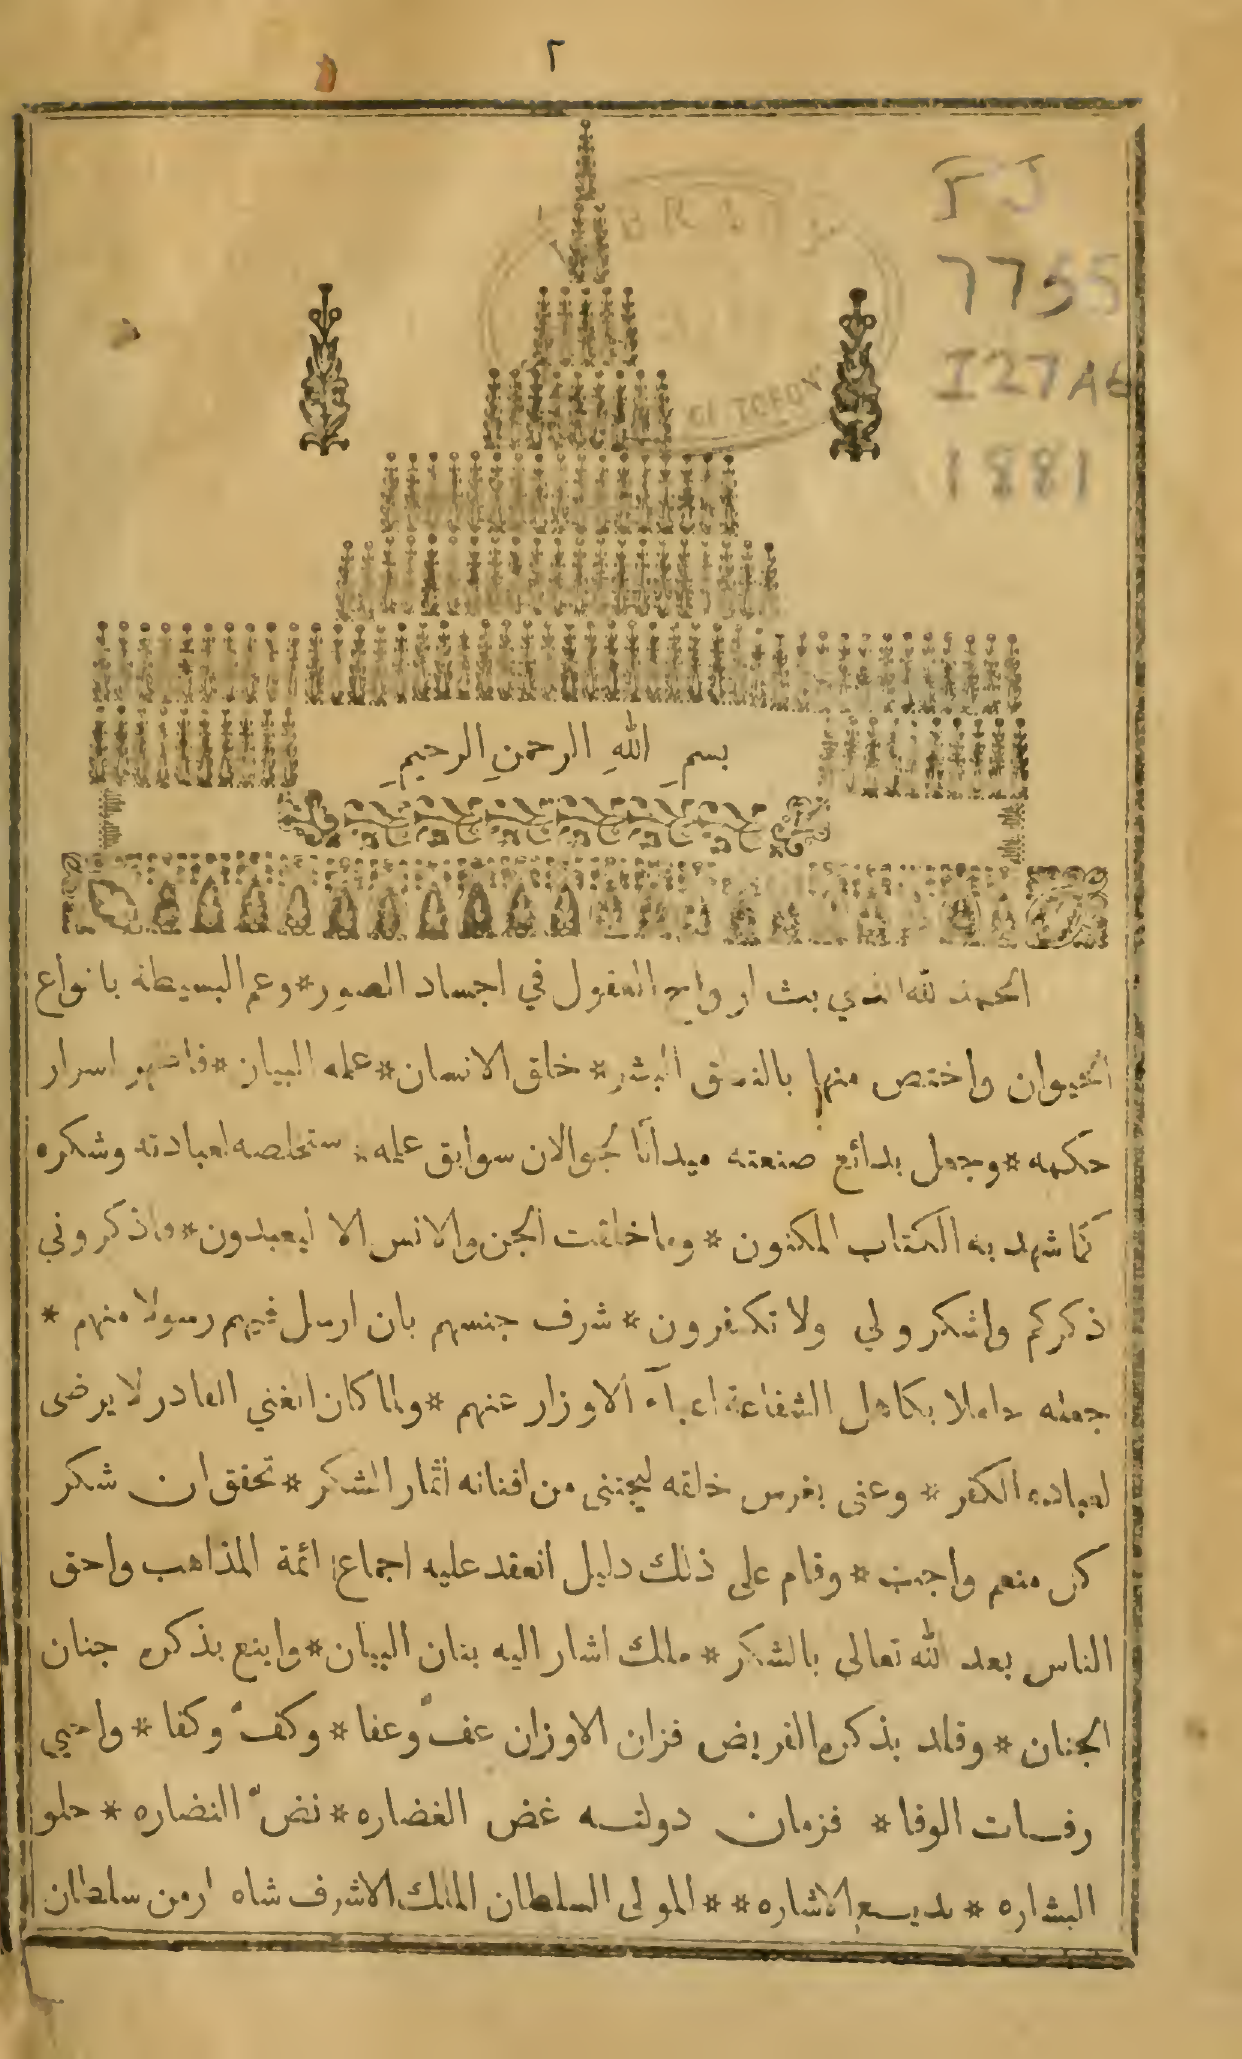 ٢
PJ
7755
I27A6
1881
بسم الله الرحمن الرحيم
الحمد لله الذي بث ارواح العقول في اجساد الصور * وعم البسيطة بانواع
الحيوان واختص منها بالنطق البشر * خلق الانسان * علمه البيان * فاظهر اسرار
حكمه * وجعل بدائع صنعته ميدانًا لجولان سوابق علمه * ستخلصه لعبادته وشكره
كما شهد به الكتاب المكنون * وما خلقت الجن والانس الا ليعبدون * واذكروني
ذكركم واشكروا لي ولا تكفرون * شرف جنسهم بان ارسل فيهم رسولا منهم *
جعله حاملا بكاهل الشفاعة اعبآء الاوزار عنهم * ولما كان الغني القادر لا يرضى
لعباده الكفر * وعنى بغرس خلقه ليجتنى من افنانه اثمار الشكر * تحقق ان شكر
كل منعم واجب * وقام على ذلك دليل انعقد عليه اجماع ائمة المذاهب واحق
الناس بعد لله تعالى بالشكر * ملك اشار اليه بنان البيان * واينع بذكره جنان
الجنان * وقلد بذكره القريض فزان الاوزان عفّ وعفا * وكفّ وكفا * واحيي
رفات الوفا * فزمان دولته غض الغضاره * نضّ النضاره * حلو
البشاره * بديع الاشاره * * المولى السلطان الملك الاشرف شاه ارمن سلطان